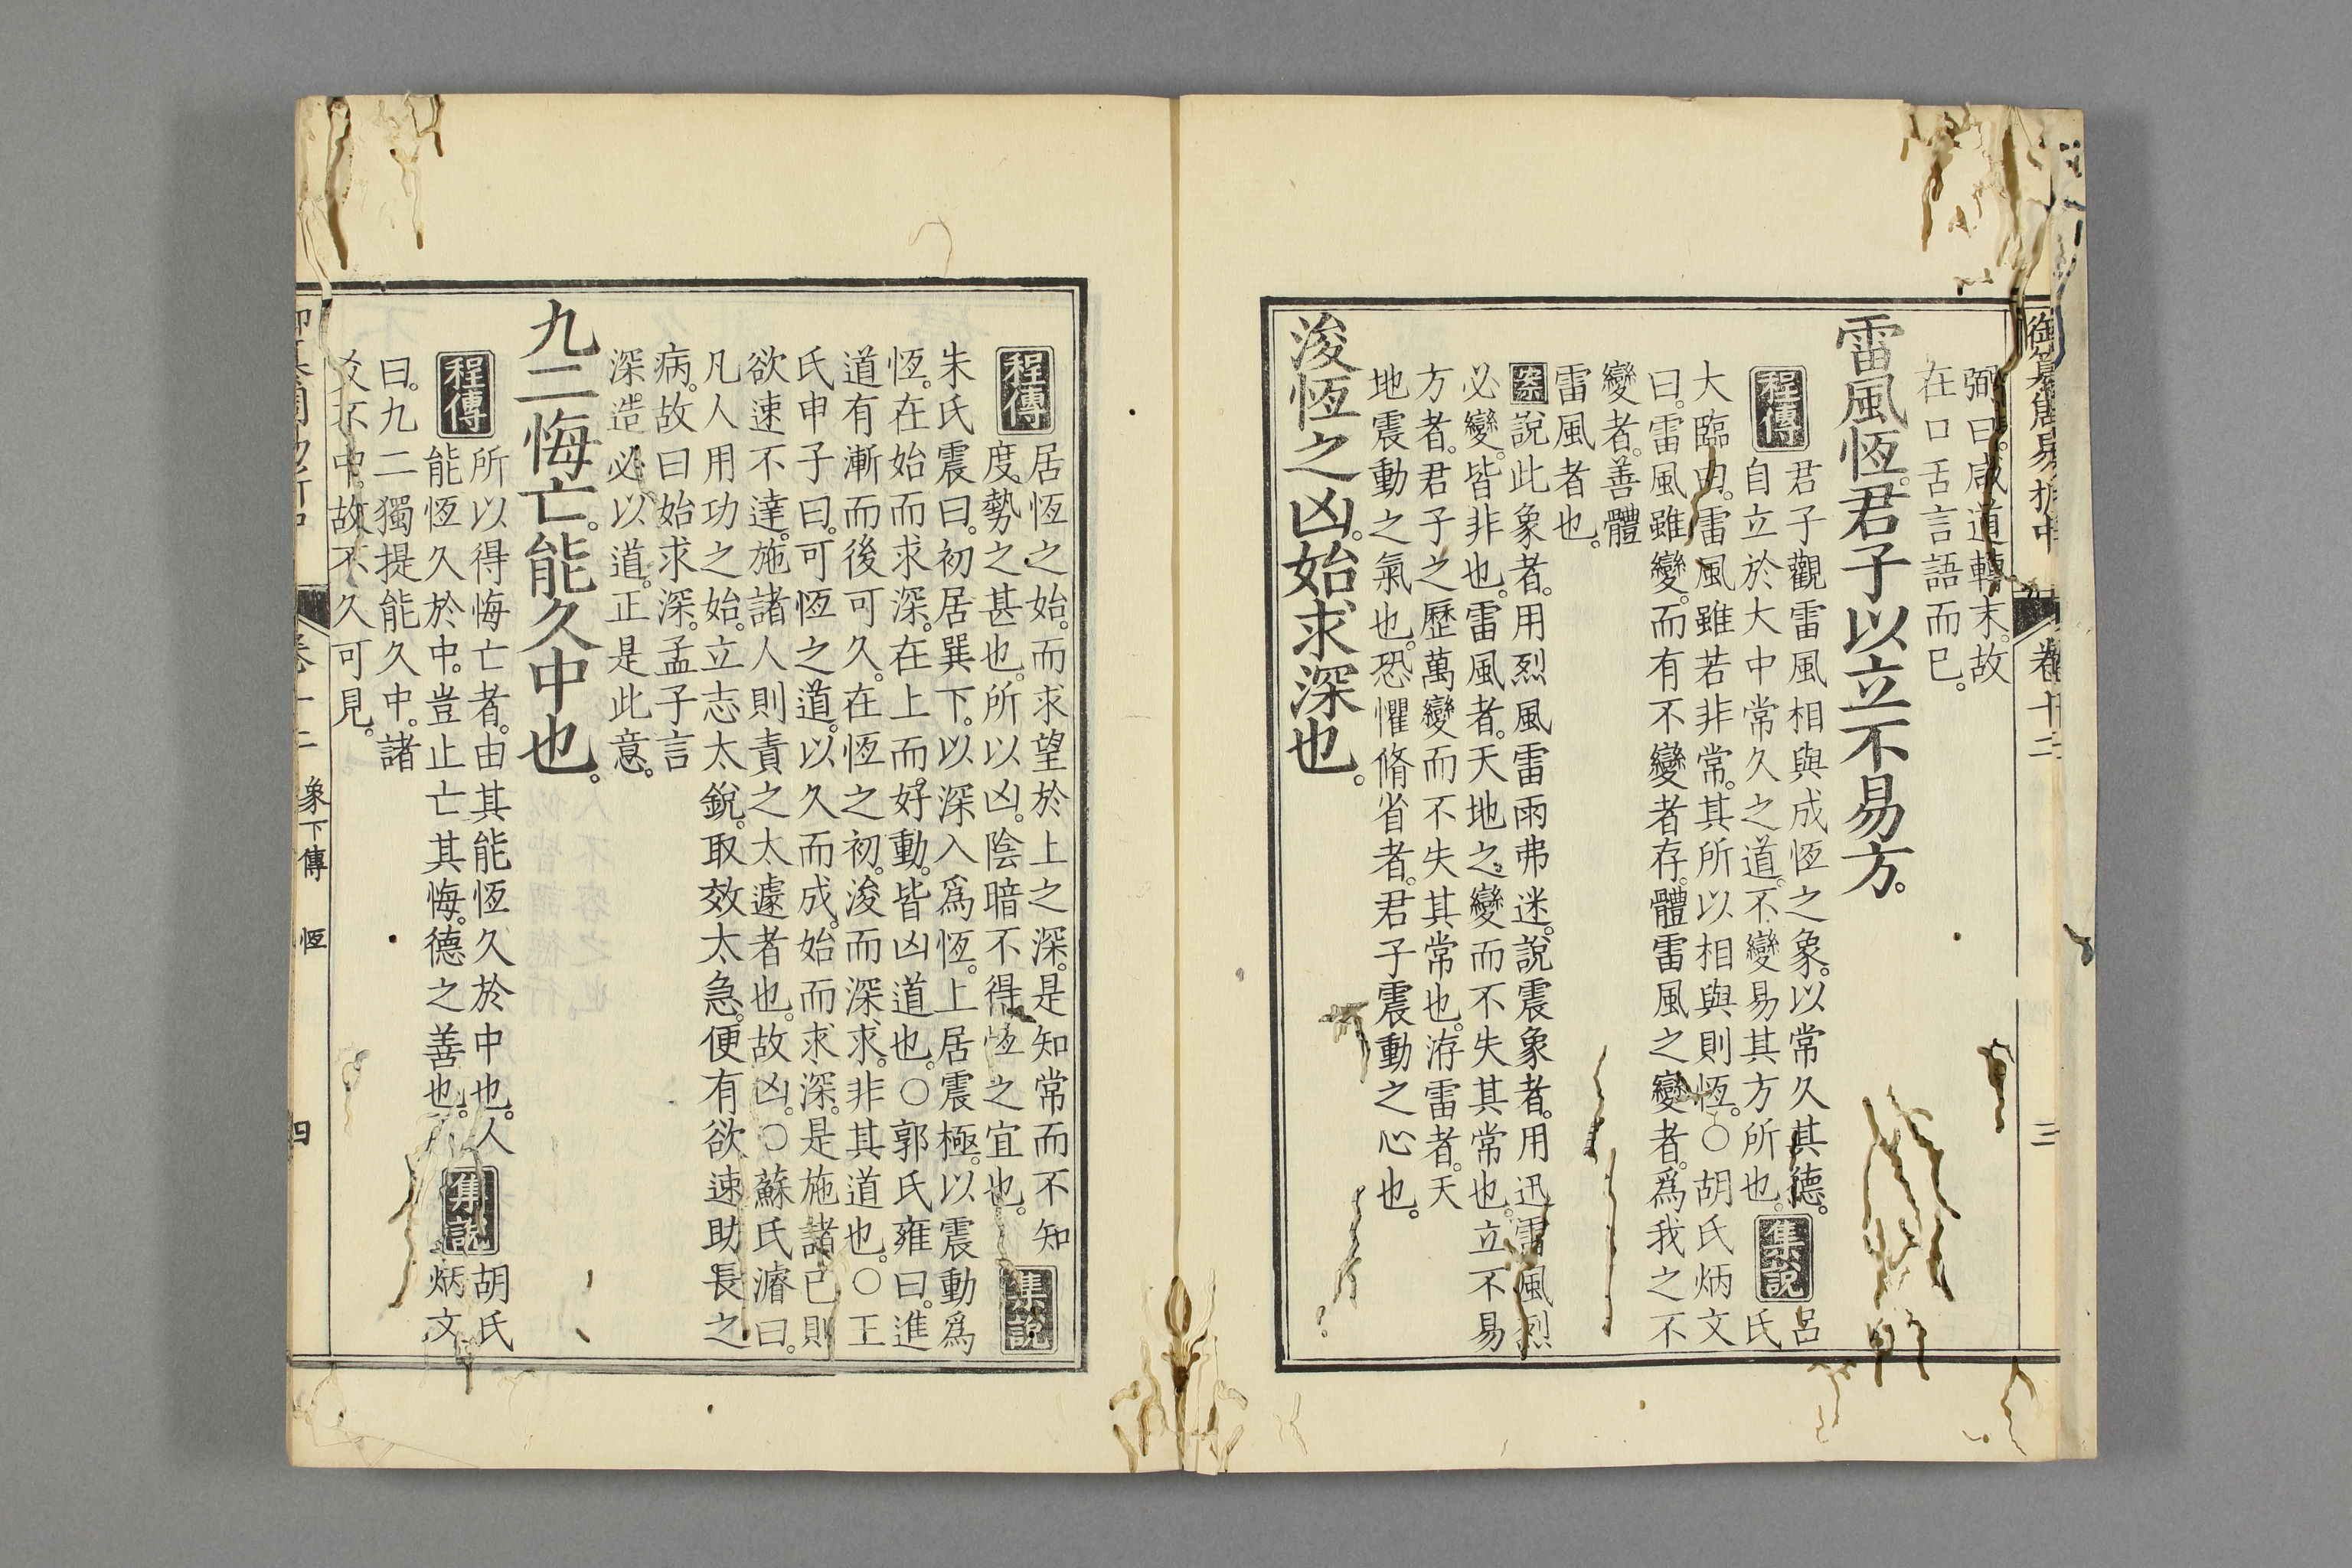 御纂周易折中 卷十二 三
彌曰。咸道轉末。故
在口舌言語而已。
雷風恆。君子以立不易方。
程傳 君子觀雷風相與成恆之象。以常久其德。
自立於大中常久之道。不變易其方所也。 集說 呂
氏
大臨曰。雷風雖若非常。其所以相與則恆。○胡氏炳文
曰。雷風雖變。而有不變者存。體雷風之變者。爲我之不
變者。善體
雷風者也。
案說此象者。用烈風雷雨弗迷。說震象者。用迅雷風烈
必變。皆非也。雷風者。天地之變而不失其常也。立不易
方者。君子之歷萬變而不失其常也。洊雷者。天
地震動之氣也。恐懼脩省者。君子震動之心也。
浚恆之凶。始求深也。
程傳 居恆之始。而求望於上之深。是知常而不知
度。勢之甚也。所以凶。陰暗不得恆之宜也。 集說
朱氏震曰。初居巽下。以深入爲恆。上居震極。以震動爲
恆。在始而求深。在上而好動。皆凶道也。○郭氏雍曰。進
道有漸而後可久。在恆之初。浚而深求。非其道也。○王
氏申子曰。可恆之道。以久而成。始而求深。是施諸己則
欲速不達。施諸人則責之太遽者也。故凶。○蘇氏濬曰。
凡人用功之始。立志太銳。取效太急。便有欲速助長之
病。故曰始求深。孟子言
深造必以道。正是此意。
九二悔亡。能久中也。
程傳 所以得悔亡者。由其能恆久於中也。人
能恆久於中。豈止亡其悔。德之善也。 集說 胡氏
炳文
曰。九二獨提能久中。諸
爻不中。故不久可見。
卷十二 象下傳 恆 四